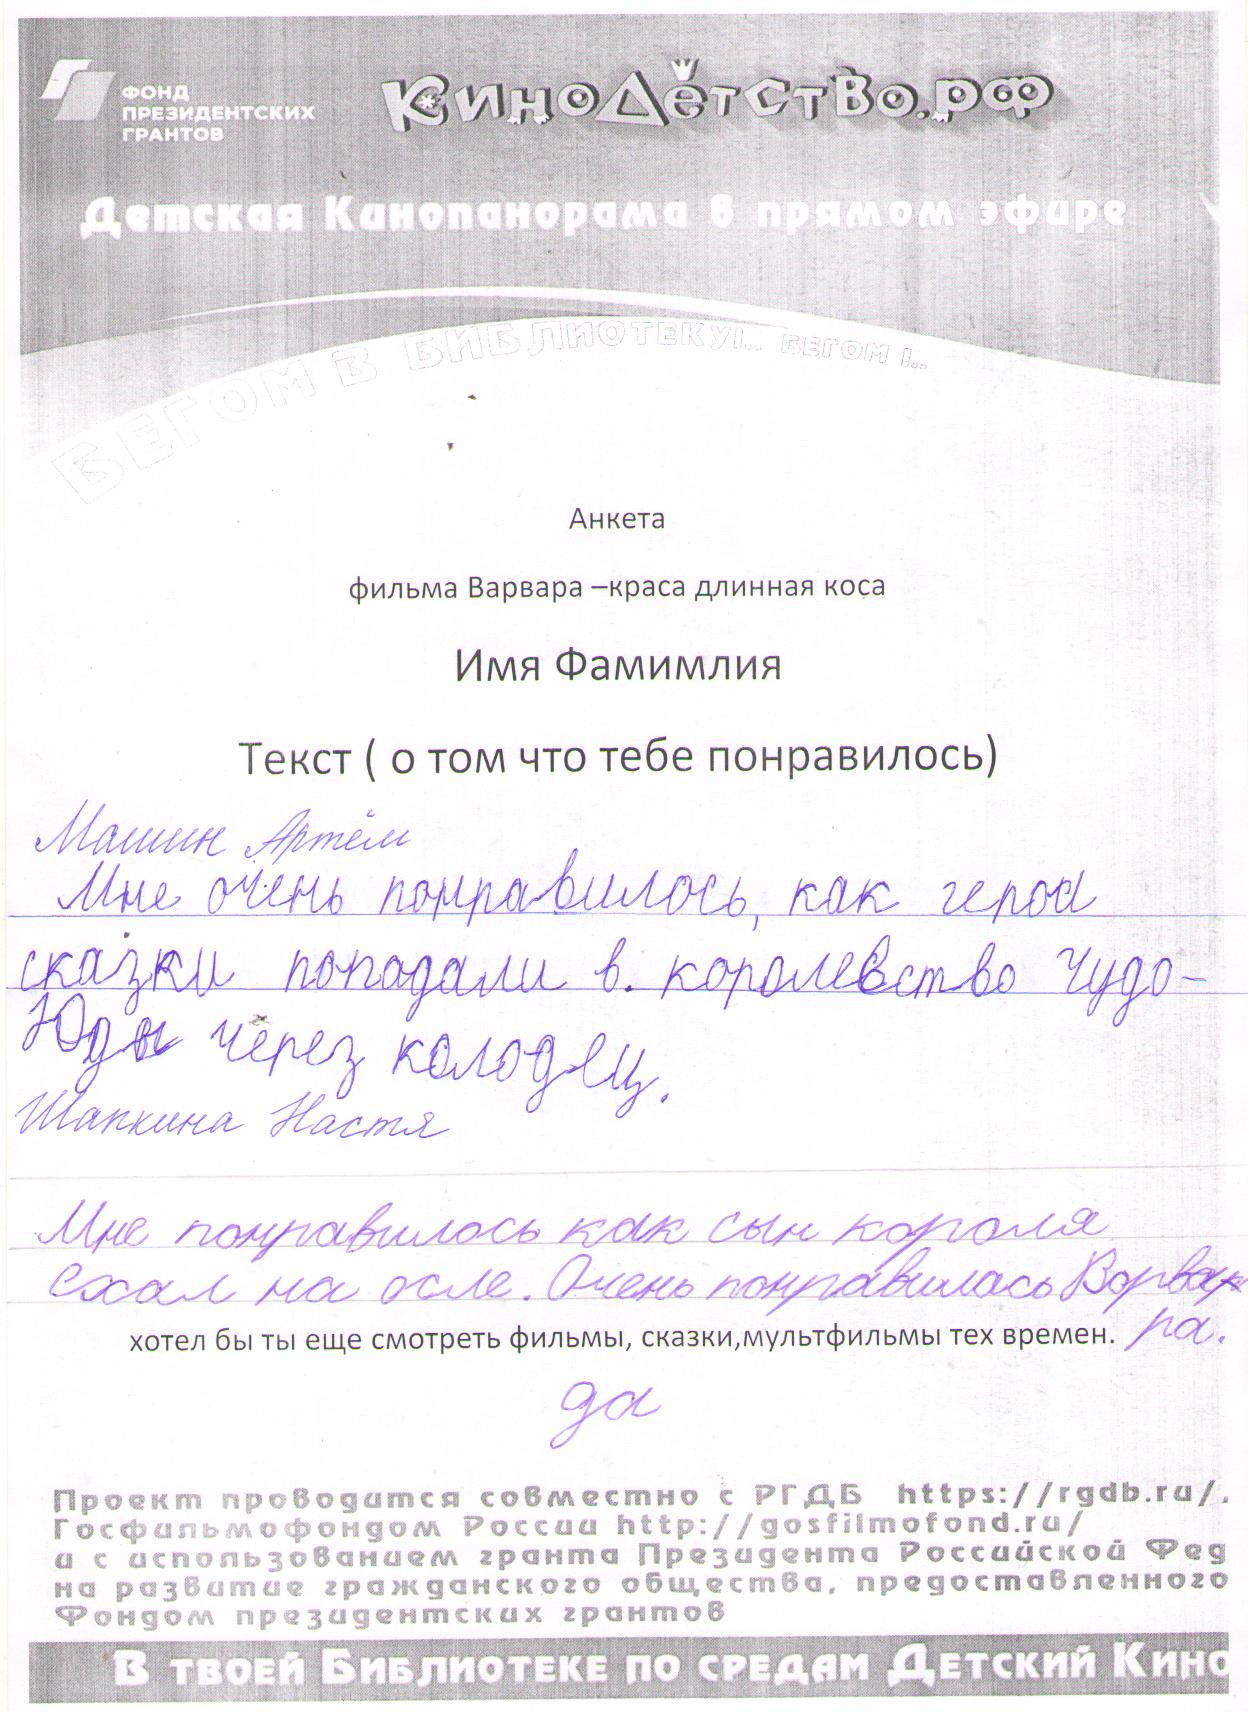 ФОНД
ПРЕЗИДЕНТСКИХ
ГРАНТОВ
КиноДетство.рф
Детская Кинопанорама в прямом эфире
БЕГОМ В БИБЛИОТЕКУ!.. БЕГОМ !..
Анкета
фильма Варвара –краса длинная коса
Имя Фамимлия
Текст ( о том что тебе понравилось)
Машин Артём
Мне очень понравилось, как герои
сказки попадали в королевство Чудо-
Юды через колодец.
Шапкина Настя
Мне понравилось как сын короля
ехал на осле. Очень понравилась Варва-
ра.
хотел бы ты еще смотреть фильмы, сказки,мультфильмы тех времен.
да
Проект проводится совместно с РГДБ https://rgdb.ru/,
Госфильмофондом России http://gosfilmofond.ru/
и с использованием гранта Президента Российской Фед
на развитие гражданского общества, предоставленного
Фондом президентских грантов
В твоей Библиотеке по средам Детский Кино